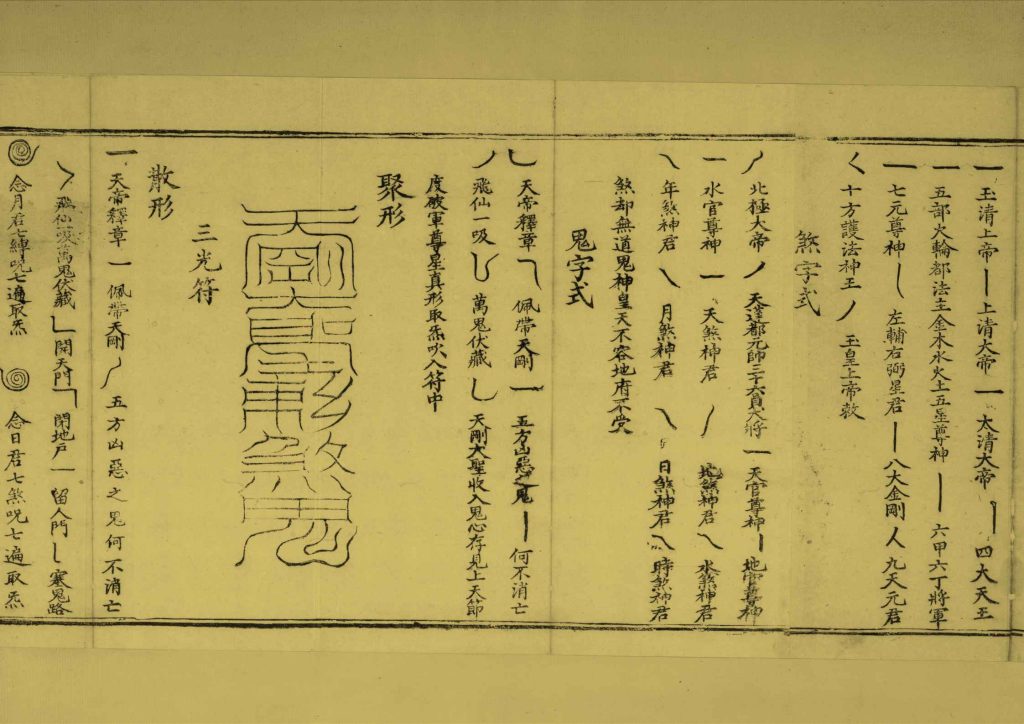 玉清上帝 上清大帝 太清大帝 四大天王
五部火輪都法主金木水火土五星尊神 六甲六丁將軍
七元尊神 左輔右弼星君 八大金剛 九天元君
十方護法神王 玉皇上帝敕
煞字式
北極大帝 天蓬都元帥三十六員大將 天官尊神 地官尊神
水官尊神 天煞神君 地煞神君 水煞神君
年煞神君 月煞神君 日煞神君 時煞神君
煞却無道鬼神皇天不容地府不受
鬼字式
天帝釋章 佩帶天剛 五方凶惡之鬼 何不消亡
飛仙一吸 萬鬼伏藏 天剛大聖收入鬼心存見上天節
度破軍尊星真形取炁吹入符中
聚形
三光符
散形
天帝釋章 佩帶天剛 五方凶惡之鬼何不消亡
飛仙一吸萬鬼伏藏 開天門 閉地戶 留人門 塞鬼路
念月君七 咒七遍取炁 念日君七煞咒七遍取炁